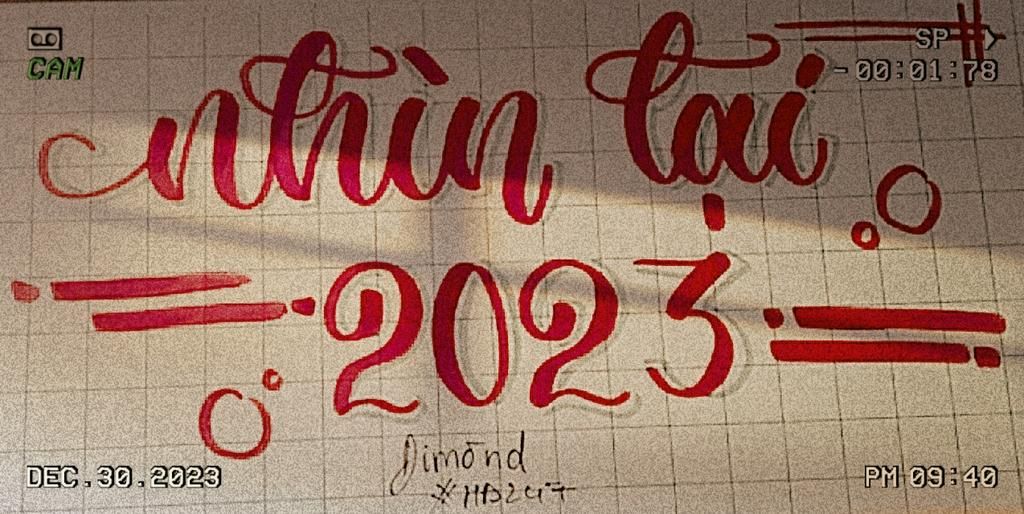 CAM
SP
-00:01:78
nhìn lại
2023
Dimōnd
DEC.30.2023
PM 09:40